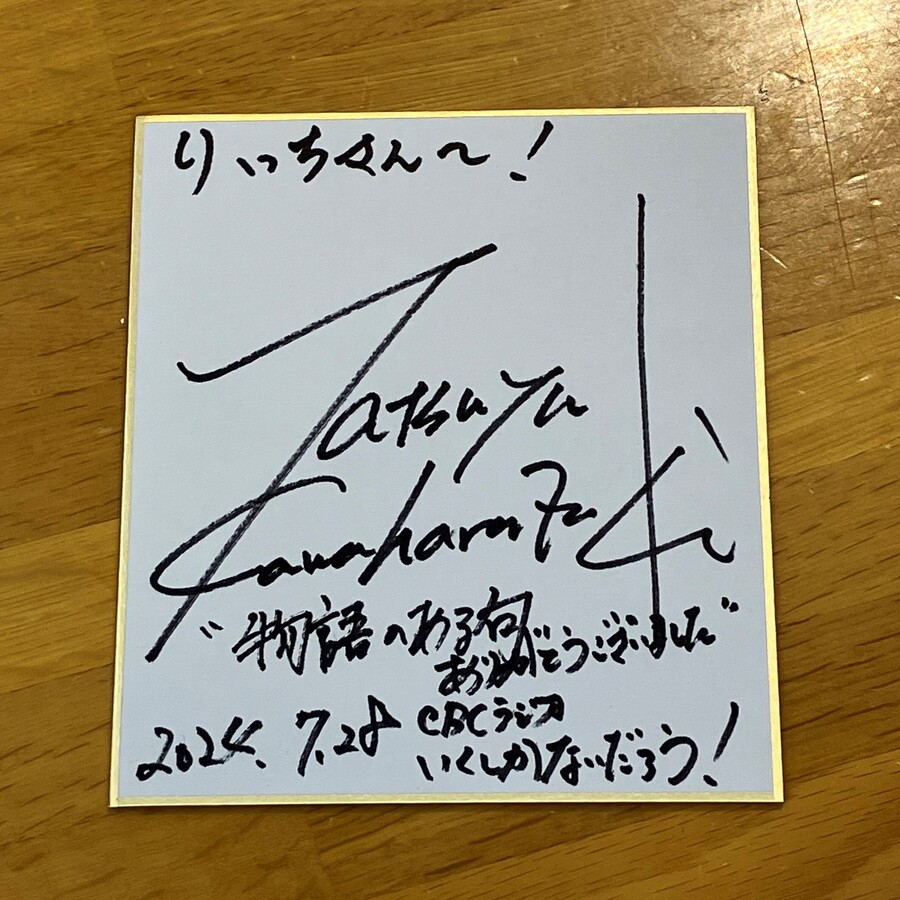 りっちさんへ!
Tatsuya
Kawaharazaki
"物語のある句
ありがとうございました"
2024. 7.28
CBCラジオ
いくしかないだろう!